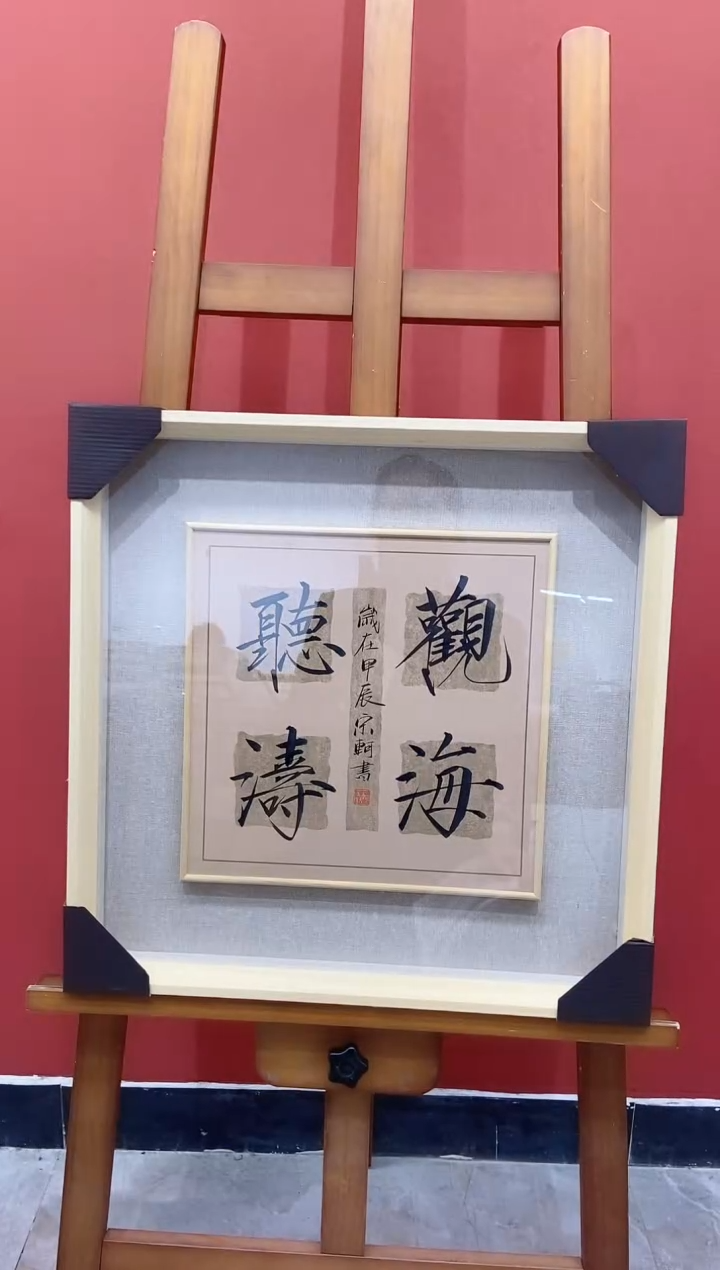 觀海
歲在甲辰宗軻書
聽濤